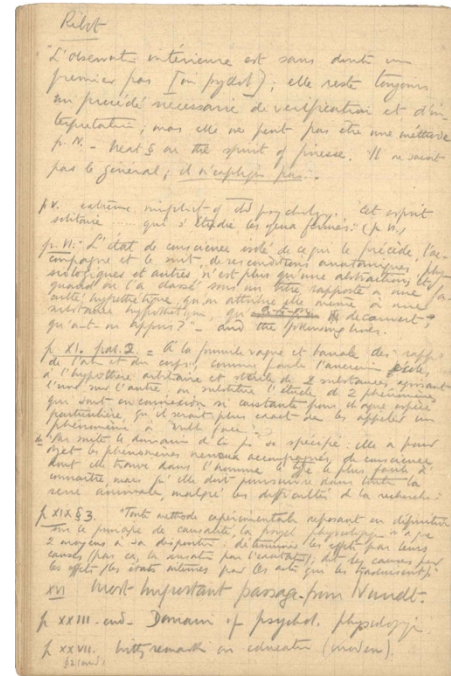 Ribot
"L'observation intérieure est sans doute un
premier pas [en psychol]; elle reste toujours
un procédé nécessaire de vérification et d'in
terprétation; mais elle ne peut pas être une méthode
p. IV. - neat § on the spirit of finesse. Il ne saurait
pas le général; il n'explique pas.
p V. extreme simplicity of old psychology. "cet esprit
solitaire ... qui s'étudie les yeux fermés" (p VI.)
p. VI. "L'état de conscience isolé de ce qui le précède, l'ac-
compagne et le suit, de ses conditions anatomiques, phy-
siologiques et autres n'est plus qu'une abstraction, et
quand on l'a classé sous un titre, rapporté à une
hypothétique, qu'on attribue elle même à une
substance hypothétique, qu' découvert,
qu'a-t-on appris?" - and the following lines.
p. XI. par. 2 = A la formule vague et banale des "rapp
de l'âme et du corps", comme parle l'ancienne école,
à l'hypothèse arbitraire et stérile de 2 substances agissant
l'une sur l'autre, on substitue l'étude de 2 phénomènes
qui sont en connexion si constante pour chaque espèce
particulière qu'il serait plus exact de les appeler un
phénomène à double face."
"Par suite le domaine de la ψ. se spécifie: elle a pour
objet les phénomènes nerveux accompagnés de conscience
dont elle trouve dans l'homme le type le plus facile à
connaître, mais qu'elle doit poursuivre dans toute la
série animale, malgré les difficultés de la recherche."
p XIX § 3. "Toute méthode expérimentale reposant en définitive
sur le principe de causalité, la psych. physiologique n'a que
2 moyens à sa disposition: déterminer les effets par leurs
causes (par ex. la sensation par l'excitation); dét. les causes par
les effets (les états internes par les actes qui les traduisent)
XVI Most important passage from Wundt.
p XXIII. end. Domain of psychol. physiologi
p XXVII. witty remark on education (modern).
§ 2 (end)